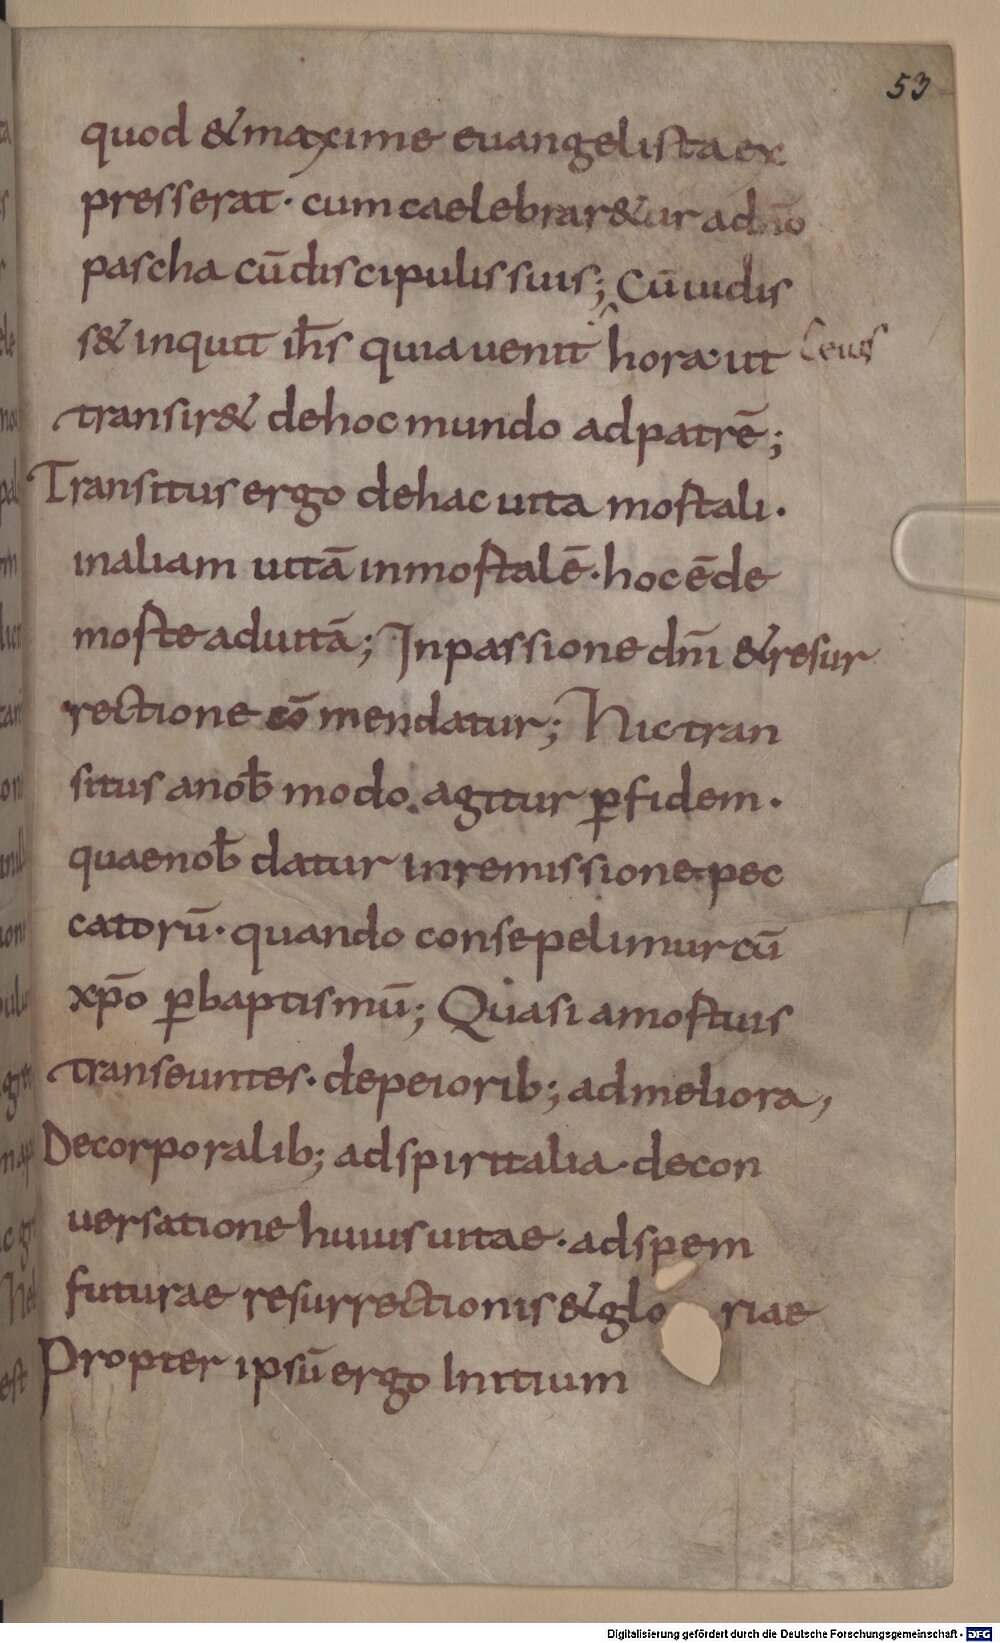 53
quod & maxime euangelista ex
presserat · cum caelebrar&ur adnō
pascha cū discipulis suis; Cū uidis
s& inquit ih̅s quia uenit hora · ut eius
transir& de hoc mundo ad patrē;
Transitus ergo de hac uita mortali ·
in aliam uitā inmortalē · hoc ē de
morte ad uitā; In passione dn̄i & resur
rectione cō mendatur; Hic tran
situs a nob̄ modo agitur p̱ fidem ·
quae nob̄ datur in remissione pec
catorū · quando consepelimur cū
xp̄o p̱ baptismū; Quasi a mortuis
transeuntes · de peiorib; ad meliora,
De corporalib; ad spiritalia · de con
uersatione huius uitae · ad spem
futurae resurrectionis & glo riae
Propter ipsū ergo Initium
Digitalisierung gefördert durch die Deutsche Forschungsgemeinschaft - DFG